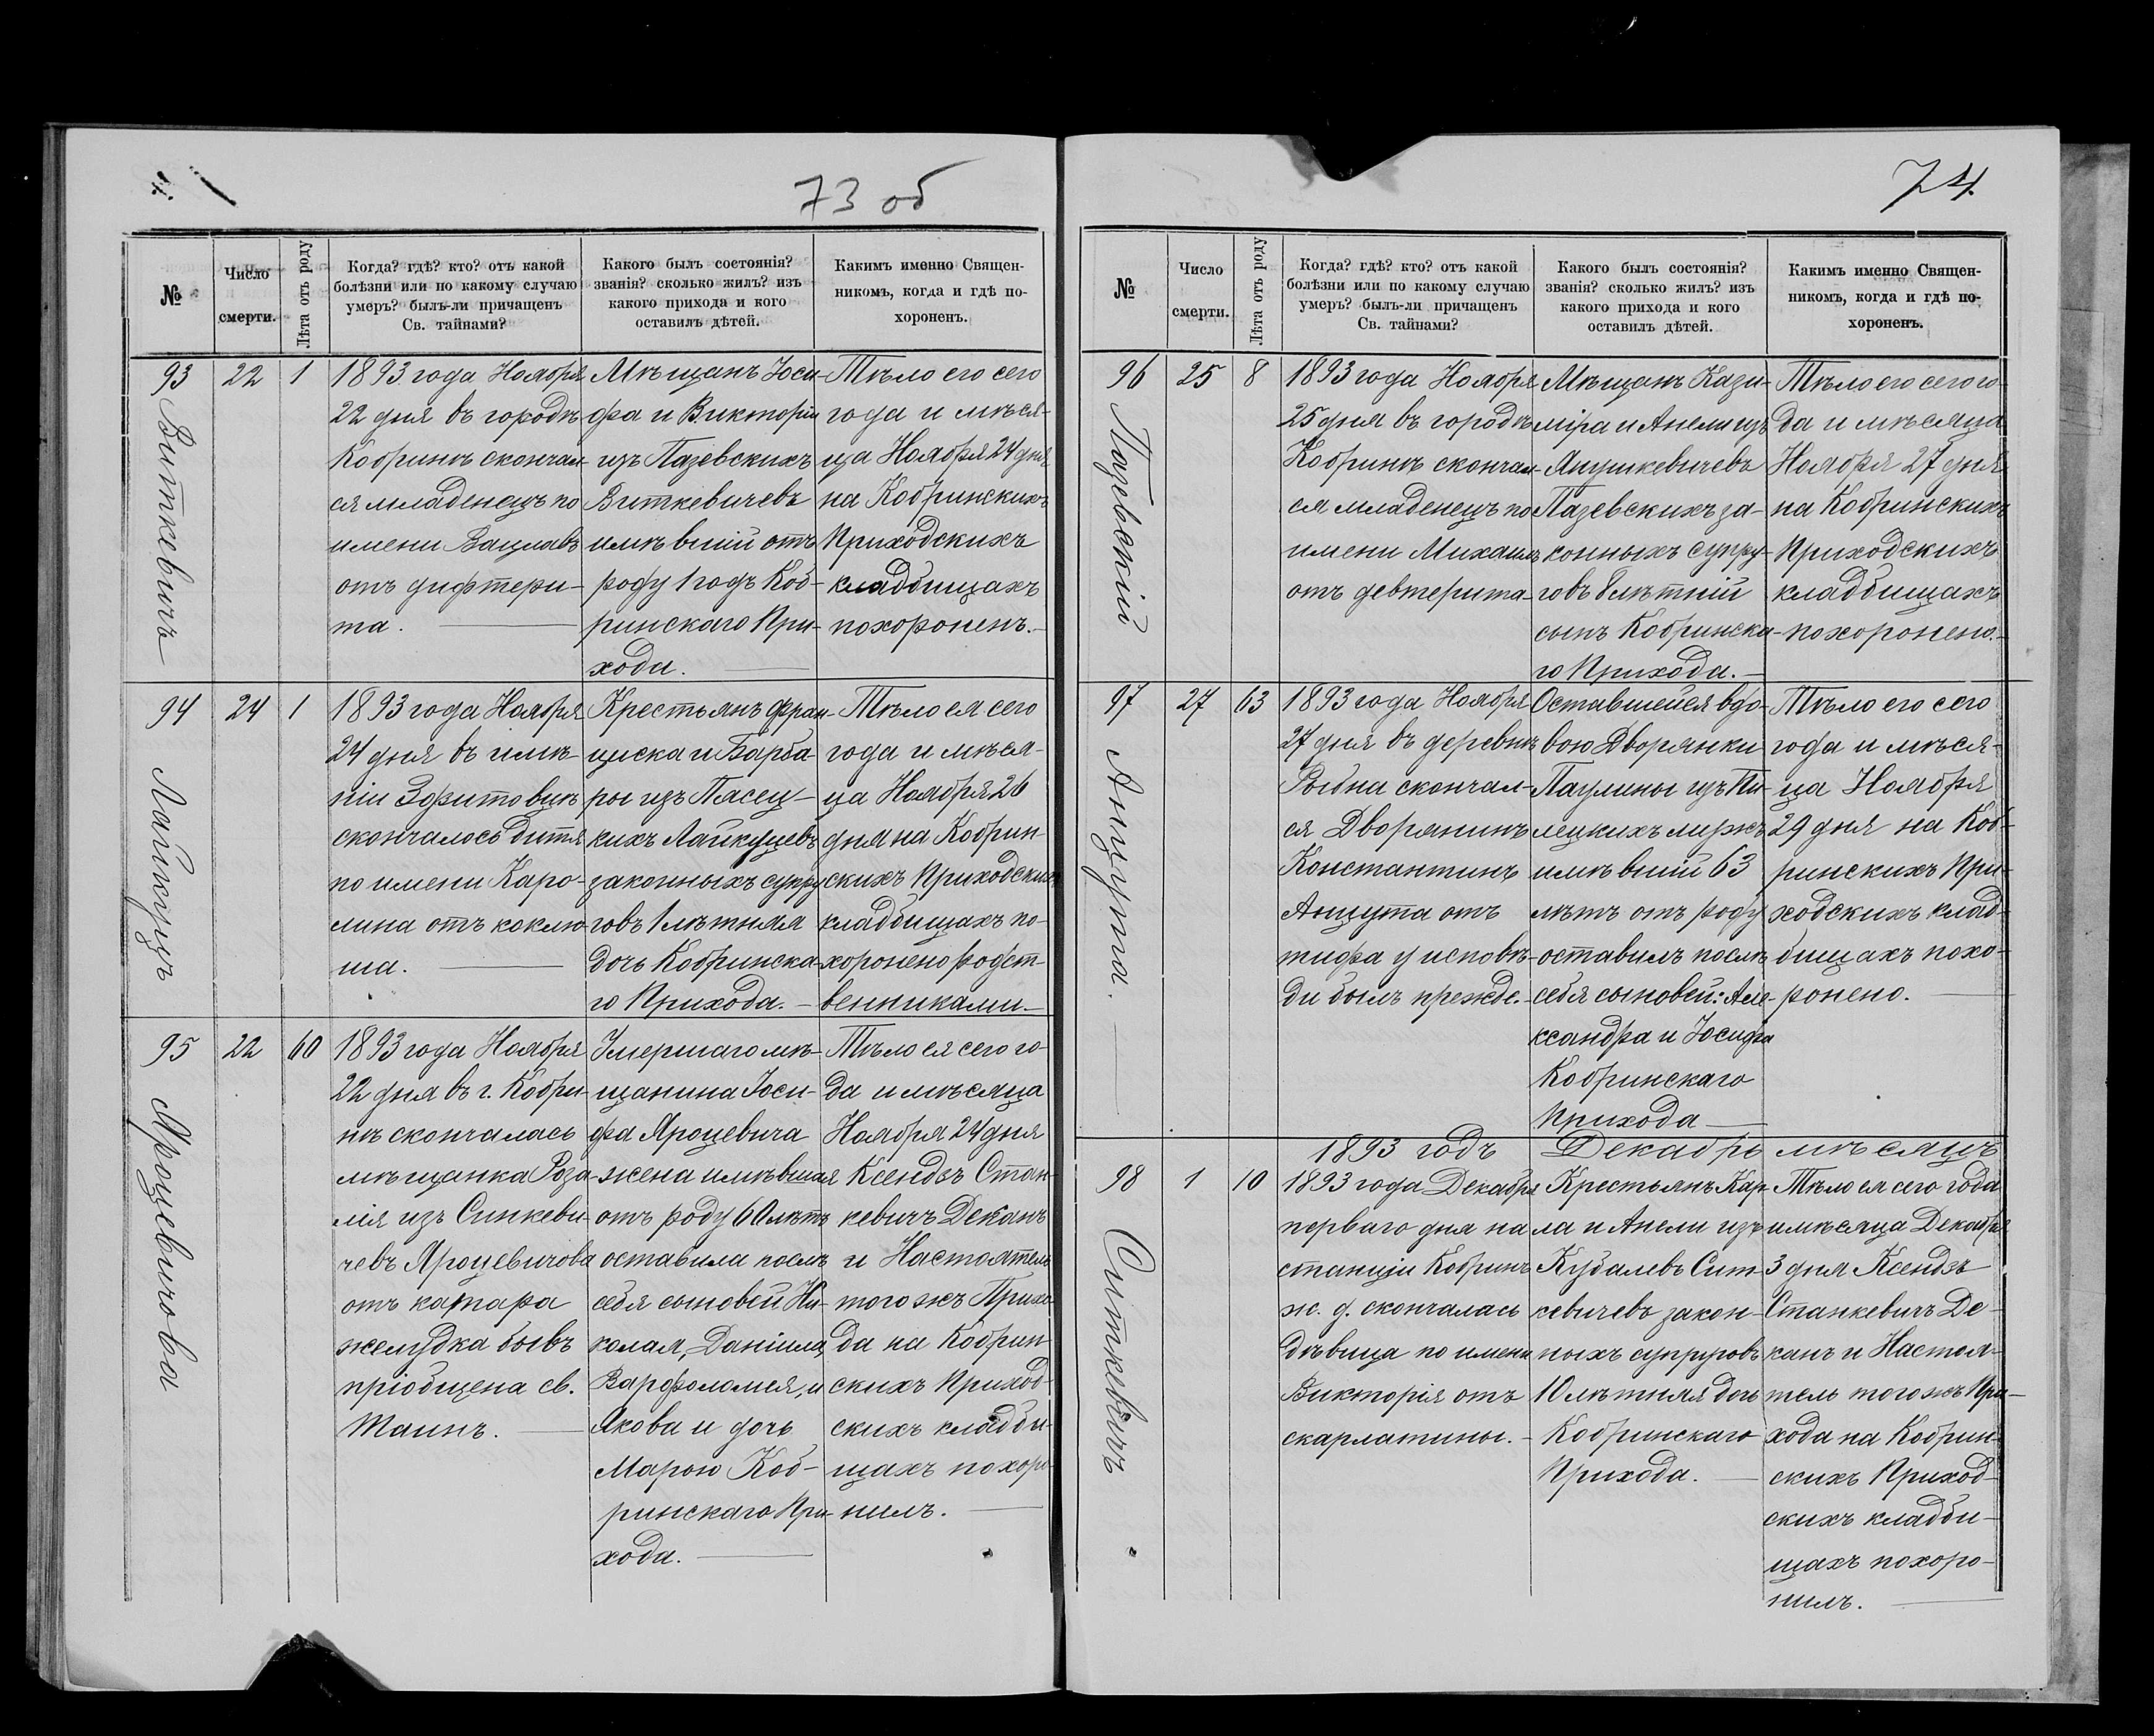 73 об
№
Число
смерти.
Лѣта отъ роду
Когда? гдѣ? кто? отъ какой
болѣзни или по какому случаю
умеръ? былъ-ли причащенъ
Св. тайнами?
Какого былъ состоянія?
званія? сколько жилъ? изъ
какого прихода и кого
оставилъ дѣтей.
Какимъ именно Священ-
никомъ, когда и гдѣ по-
хороненъ.
93
Виткевичъ
22
1
1893 года Ноября
22 дня въ городѣ
Кобринѣ скончал-
ся младенецъ по
имени Вацлавъ
отъ дифтери-
та.
Мѣщанъ Іоси-
фа и Викторіи
изъ Пазевскихъ
Виткевичевъ
имѣвшій отъ
роду 1 годъ Коб-
ринскаго При-
хода.
Тѣло его сего
года и мѣся-
ца Ноября 24 дня
на Кобринскихъ
Приходскихъ
кладбищахъ
похороненъ.
94
Лайкуцъ
24
1
1893 года Ноября
24 дня въ имѣ-
ніи Зофитовцѣ
скончалось дитя
по имени Каро-
лина отъ коклю-
ша.
Крестьянъ Фран-
циска и Барба-
ры изъ Пасец-
кихъ Лайкуцевъ
законныхъ супру-
говъ 1 лѣтняя
дочь Кобринска-
го Прихода.
Тѣло ея сего
года и мѣся-
ца Ноября 26
дня на Кобрин-
скихъ Приходскихъ
кладбищахъ по-
хоронено родст-
венниками
95
Яроцевичова
22
60
1893 года Ноября
22 дня въ г. Кобри-
нѣ скончалась
мѣщанка Роза-
лія изъ Синкеви-
чевъ Яроцевичова
отъ катара
желудка бывъ
пріобщена св.
Таинъ.
Умершаго мѣ-
щанина Іоси-
фа Яроцевича
жена имѣвшая
отъ роду 60 лѣтъ
оставила послѣ
себя сыновей Ни-
колая, Даніила,
Варфоломея, и
Якова и дочь
Марою Коб-
ринскаго При-
хода.
Тѣло ея сего го-
да и мѣсяца
Ноября 24 дня
Ксендзъ Стан-
кевичъ Деканъ
и Настоятель
того жъ Прихо-
да на Кобрин-
скихъ Приход-
скихъ кладби-
щахъ похоро-
нилъ.
74.
№
Число
смерти.
Лѣта отъ роду
Когда? гдѣ? кто? отъ какой
болѣзни или по какому случаю
умеръ? былъ-ли причащенъ
Св. тайнами?
Какого былъ состоянія?
званія? сколько жилъ? изъ
какого прихода и кого
оставилъ дѣтей.
Какимъ именно Священ-
никомъ, когда и гдѣ по-
хороненъ.
96
Пазевскій
25
8
1893 года Ноября
25 дня въ городѣ
Кобринѣ скончал-
ся младенецъ по
имени Михаилъ
отъ девтерита-
Мѣщанъ Кази-
міра и Анели изъ
Янушкевичевъ
Пазевскихъ за-
конныхъ супру-
говъ 8 лѣтній
сынъ Кобринска-
го Прихода.
Тѣло его сего го-
да и мѣсяца
Ноября 27 дня
на Кобринскихъ
Приходскихъ
кладбищахъ
похоронено.
97
Анцута.
27
63
1893 года Ноября
27 дня въ деревнѣ
Рыбна скончал-
ся Дворянинъ
Константинъ
Анцута отъ
тифа у исповѣ-
ди былъ прежде.
Оставшейся вдо-
вою Дворянки
Паулины изъ Пи-
лецкихъ мужъ
имѣвшій 63
лѣтъ отъ роду
оставилъ послѣ
себя сыновей: Але-
ксандра и Іосифа
Кобринскаго
Прихода
Тѣло его сего
года и мѣся-
ца Ноября
29 дня на Коб-
ринскихъ При-
ходскихъ клад-
бищахъ похо-
ронено.
1893 годъ Декабрь мѣсяцъ
98
Ситкевичъ
1
10
1893 года Декабря
перваго дня на
станціи Кобринъ
ж. д. скончалась
дѣвица по имени
Викторія отъ
скарлатины.
Крестьянъ Кар-
ла и Анели изъ
Кубалевъ Сит-
кевичевъ закон-
ныхъ супруговъ
10 лѣтняя дочь
Кобринскаго
Прихода.
Тѣло ея сего года
и мѣсяца Декабря
3 дня Ксендзъ
Станкевичъ Де-
канъ и Настоя-
тель того жъ При-
хода на Кобрин-
скихъ Приход-
скихъ кладби-
щахъ похоро-
нилъ.